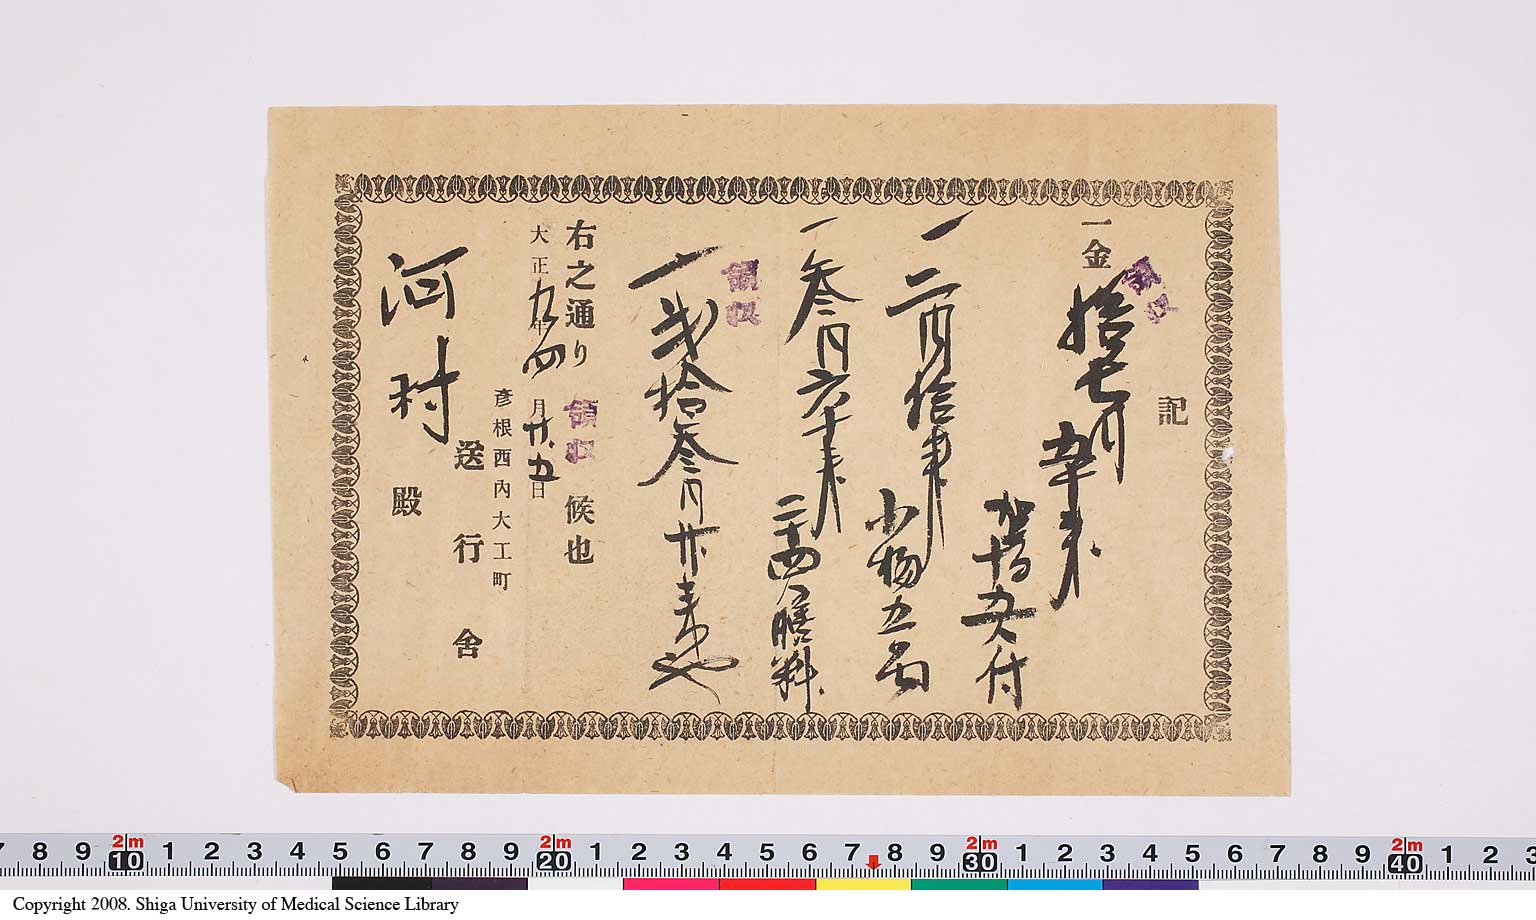 記
一金拾七円五十銭
領収
付
一二円拾銭
小 五
一参円六十銭
二十四人膳料
領収
一弐拾参円廿銭也
右之通り領収候也
大正九年四月廿五日
彦根西内大工町
送行舎
河村殿
7 8 9 2m 10 1 2 3 4 5 6 7 8 9 2m 20 1 2 3 4 5 6 7 8 9 2m 30 1 2 3 4 5 6 7 8 9 2m 40 1 2 3
Copyright 2008. Shiga University of Medical Science Library